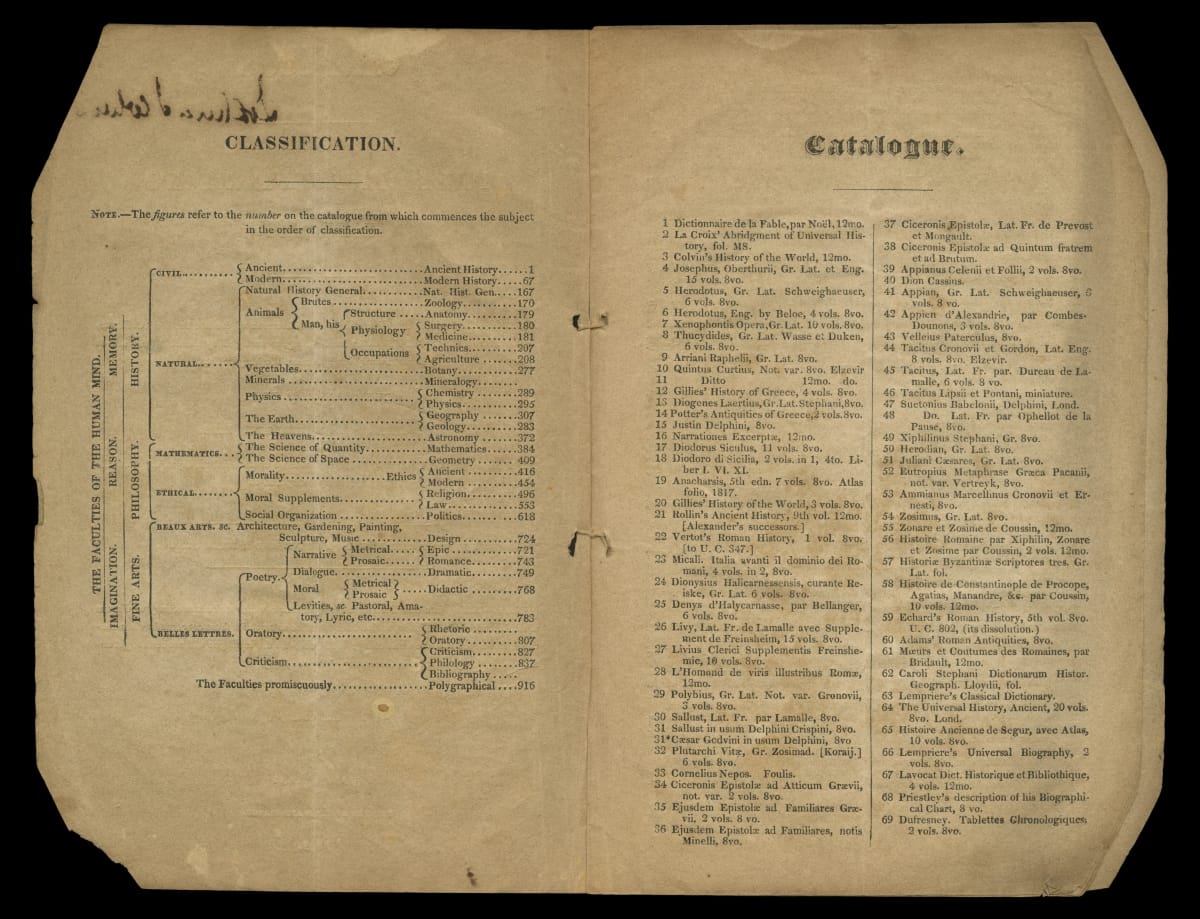 CLASSIFICATION.
NOTE.—The figures refer to the number on the catalogue from which commences the subject
in the order of classification.
THE FACULTIES OF THE HUMAN MIND.
MEMORY.
REASON.
IMAGINATION.
HISTORY.
PHILOSOPHY.
FINE ARTS.
CIVIL.......... Ancient........................ Ancient History......1
Modern........................ Modern History.....67
NATURAL...... Natural History General........... Nat. Hist. Gen.....167
Animals Brutes............... Zoology..........170
Man, his Structure ..... Anatomy..........179
Physiology Surgery..........180
Medicine..........181
Occupations Technics..........207
Agriculture ........208
Vegetables........................ Botany............277
Minerals ........................ Mineralogy........
Physics........................ Chemistry ........289
Physics............295
The Earth........................ Geography ........307
Geology............283
The Heavens..................... Astronomy ........372
MATHEMATICS... The Science of Quantity............ Mathematics.......384
The Science of Space .............. Geometry ........409
ETHICAL........ Morality.................Ethics Ancient ..........416
Modern ..........454
Moral Supplements................. Religion..........496
Law..............553
Social Organization ................ Politics............618
BEAUX ARTS. sc. Architecture, Gardening, Painting,
Sculpture, Music ............... Design ............724
BELLES LETTRES. Poetry. Narrative Metrical..... Epic ..............721
Prosaic...... Romance..........743
Dialogue................. Dramatic..........749
Moral Metrical Prosaic ...... Didactic ..........768
Levities, sc Pastoral, Ama-
tory, Lyric, etc.........................783
Oratory........................ Rhetoric ..........
Oratory ..........807
Criticism........................ Criticism..........827
Philology ........837
Bibliography .....
The Faculties promiscuously................ Polygraphical ....916
Catalogue.
1 Dictionnaire de la Fable, par Noël, 12mo.
2 La Croix' Abridgment of Universal His-
tory, fol. MS.
3 Colvin's History of the World, 12mo.
4 Josephus, Oberthurii, Gr. Lat. et Eng.
15 vols. 8vo.
5 Herodotus, Gr. Lat. Schweighaeuser,
6 vols. 8vo.
6 Herodotus, Eng. by Beloe, 4 vols. 8vo.
7 Xenophontis Opera, Gr. Lat. 10 vols. 8vo.
8 Thucydides, Gr. Lat. Wasse et Duken,
6 vols. 8vo.
9 Arriani Raphelii, Gr. Lat. 8vo.
10 Quintus Curtius, Not. var. 8vo. Elzevir
11 Ditto 12mo. do.
12 Gillies' History of Greece, 4 vols. 8vo.
13 Diogenes Laertius, Gr. Lat. Stephani, 8vo.
14 Potter's Antiquities of Greece, 2 vols. 8vo.
15 Justin Delphini, 8vo.
16 Narrationes Excerptæ, 12mo.
17 Diodorus Siculus, 11 vols. 8vo.
18 Diodoro di Sicilia, 2 vols. in 1, 4to. Li-
ber I. VI. XI.
19 Anacharsis, 5th edn. 7 vols. 8vo. Atlas
folio, 1817.
20 Gillies' History of the World, 3 vols. 8vo.
21 Rollin's Ancient History, 9th vol. 12mo.
[Alexander's successors.]
22 Vertot's Roman History, 1 vol. 8vo.
[to U. C. 347.]
23 Micali. Italia avanti il dominio dei Ro-
mani, 4 vols. in 2, 8vo.
24 Dionysius Halicarnessensis, curante Re-
iske, Gr. Lat. 6 vols. 8vo.
25 Denys d'Halycarnasse, par Bellanger,
6 vols. 8vo.
26 Livy, Lat. Fr. de Lamalle avec Supple-
ment de Freinsheim, 15 vols. 8vo.
27 Livius Clerici Supplementis Freinshe-
mie, 10 vols. 8vo.
28 L'Homond de viris illustribus Romæ,
12mo.
29 Polybius, Gr. Lat. Not. var. Gronovii,
3 vols. 8vo.
30 Sallust, Lat. Fr. par Lamalle, 8vo.
31 Sallust in usum Delphini Crispini, 8vo.
31*Cæsar Godvini in usum Delphini, 8vo
32 Plutarchi Vitæ, Gr. Zosimad. [Koraij.]
6 vols. 8vo.
33 Cornelius Nepos. Foulis.
34 Ciceronis Epistolæ ad Atticum Grævii,
not. var. 2 vols. 8vo.
35 Ejusdem Epistolæ ad Familiares Græ-
vii, 2 vols. 8 vo.
36 Ejusdem Epistolæ ad Familiares, notis
Minelli, 8vo.
37 Ciceronis Epistolæ, Lat. Fr. de Prevost
et Mongault.
38 Ciceronis Epistolæ ad Quintum fratrem
et ad Brutum.
39 Appianus Celenii et Follii, 2 vols. 8vo.
40 Dion Cassius.
41 Appian, Gr. Lat. Schweighaeuser, 3
vols. 8 vo.
42 Appien d'Alexandrie, par Combes-
Dounons, 3 vols. 8vo.
43 Velleius Paterculus, 8vo.
44 Tacitus Cronovii et Gordon, Lat. Eng.
8 vols. 8vo. Elzevir.
45 Tacitus, Lat. Fr. par. Dureau de La-
malle, 6 vols. 8 vo.
46 Tacitus Lipsii et Pontani, miniature.
47 Suetonius Babelonii, Delphini, Lond.
48 Do. Lat. Fr. par Ophellot de la
Pause, 8vo.
49 Xiphilinus Stephani, Gr. 8vo.
50 Herodian, Gr. Lat. 8vo.
51 Juliani Cæsares, Gr. Lat. 8vo.
52 Eutropius Metaphrase Græca Pacanii,
not. var. Vertreyk, 8vo.
53 Ammianus Marcellnus Cronovii et Er-
nesti, 8vo.
54 Zosimus, Gr. Lat. 8vo.
55 Zonare et Zosime de Coussin, 12mo.
56 Histoire Romaine par Xiphilin, Zonare
et Zosime par Coussin, 2 vols. 12mo.
57 Historiæ Byzantinæ Scriptores tres. Gr.
Lat. fol.
58 Histoire de Constantinople de Procope,
Agatias, Manandre, &c. par Coussin,
10 vols. 12mo.
59 Echard's Roman History, 5th vol. 8vo.
U. C. 802, (its dissolution.)
60 Adams' Roman Antiquities, 8vo.
61 Mœurs et Coutumes des Romaines, par
Bridault, 12mo.
62 Caroli Stephani Dictionarum Histor.
Geograph. Lloydii, fol.
63 Lempriere's Classical Dictionary.
64 The Universal History, Ancient, 20 vols.
8vo. Lond.
65 Histoire Ancienne de Segur, avec Atlas,
10 vols. 8vo.
66 Lempriere's Universal Biography, 2
vols. 8vo.
67 Lavocat Dict. Historique et Bibliothique,
4 vols. 12mo.
68 Priestley's description of his Biographi-
cal Chart, 8 vo.
69 Dufresney. Tablettes Chronologiques;
2 vols. 8vo.